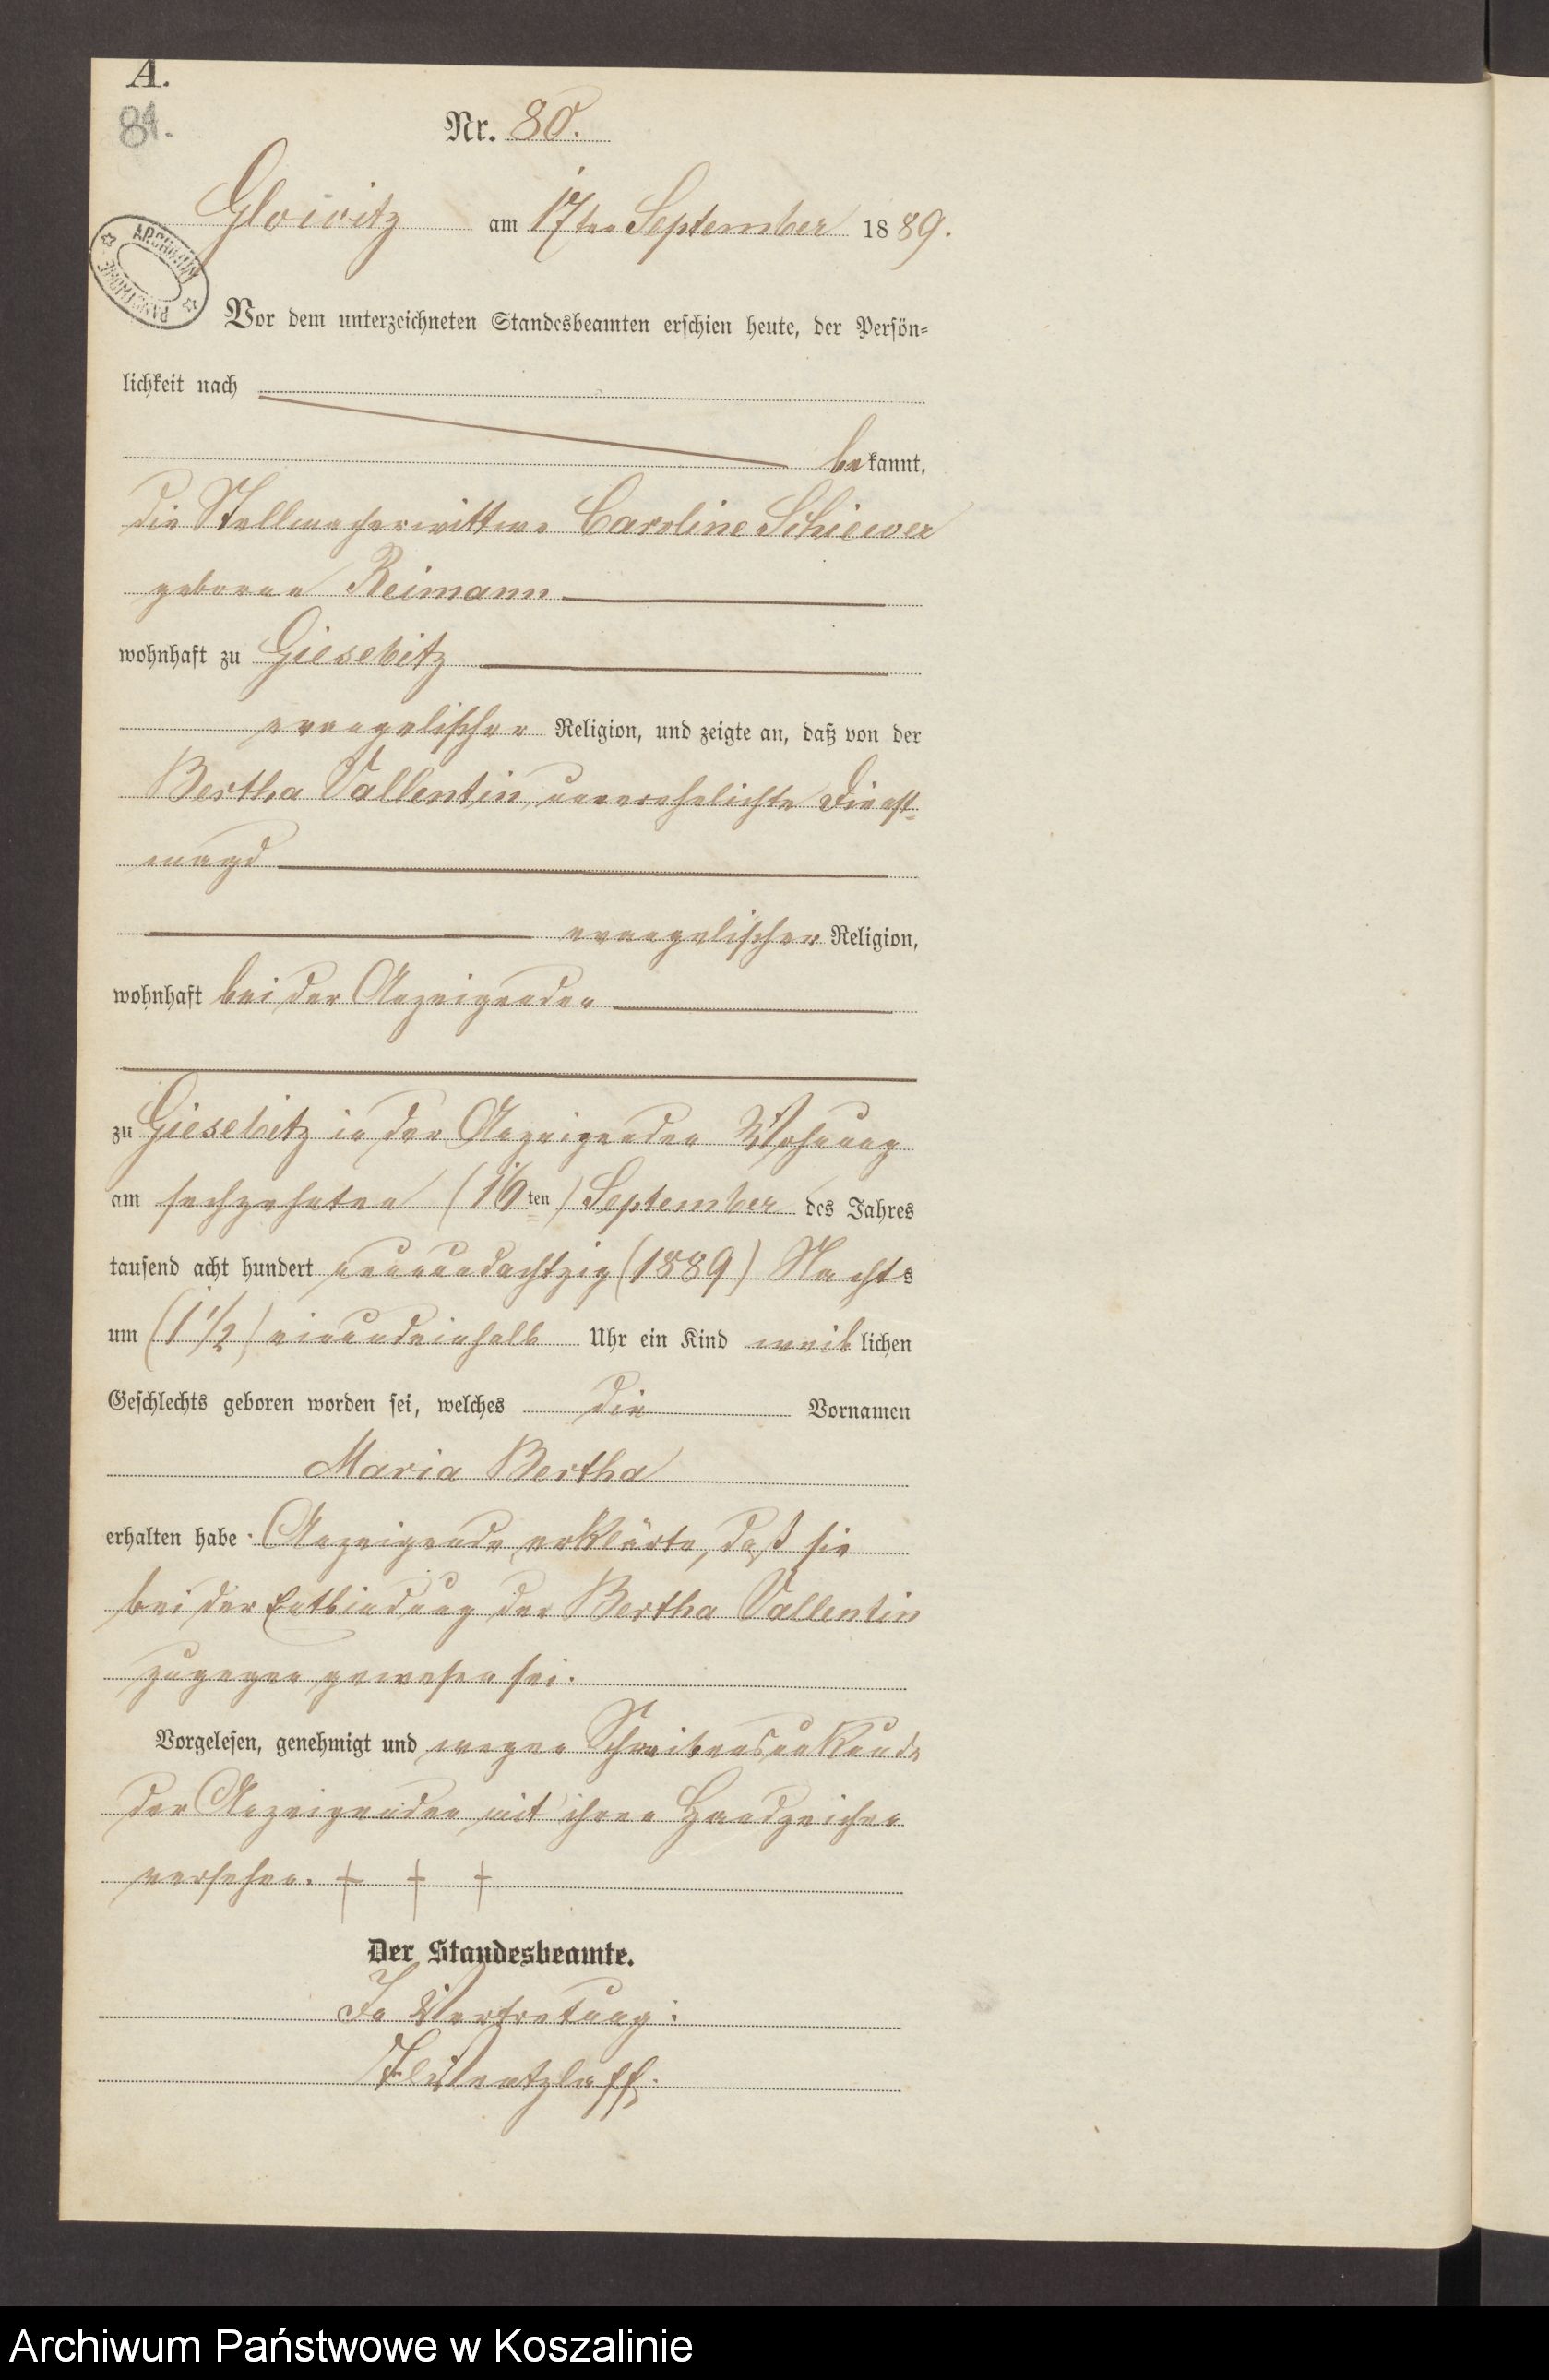 A.
81.
Nr. 80.
Glowitz am 17ten September 1889.
ARCHIWUM
PAŃSTWOWE
Vor dem unterzeichneten Standesbeamten erschien heute, der Persön=
lichkeit nach
bekannt,
die Stellmacherwittwe Caroline Schiewer
geborene Reimann
wohnhaft zu Giesebitz
evangelischer Religion, und zeigte an, daß von der
Bertha Vallentin, unverehelichte Dienst=
magd
evangelischer Religion,
wohnhaft bei der Anzeigenden
zu Giesebitz in der Anzeigenden Wohnung
am sechzehnten (16ten) September des Jahres
tausend acht hundert neunundachtzig (1889) Nachts
um (1 1/2) einundeinhalb Uhr ein Kind weiblichen
Geschlechts geboren worden sei, welches die Vornamen
Maria Bertha
erhalten habe. Anzeigende erklärte, daß sie
bei der Entbindung der Bertha Vallentin
zugegen gewesen sei.
Vorgelesen, genehmigt und wegen Schreibensunkunde
der Anzeigenden mit ihren Handzeichen
versehen. + + +
Der Standesbeamte.
In Vertretung:
Wentzlaff.
Archiwum Państwowe w Koszalinie